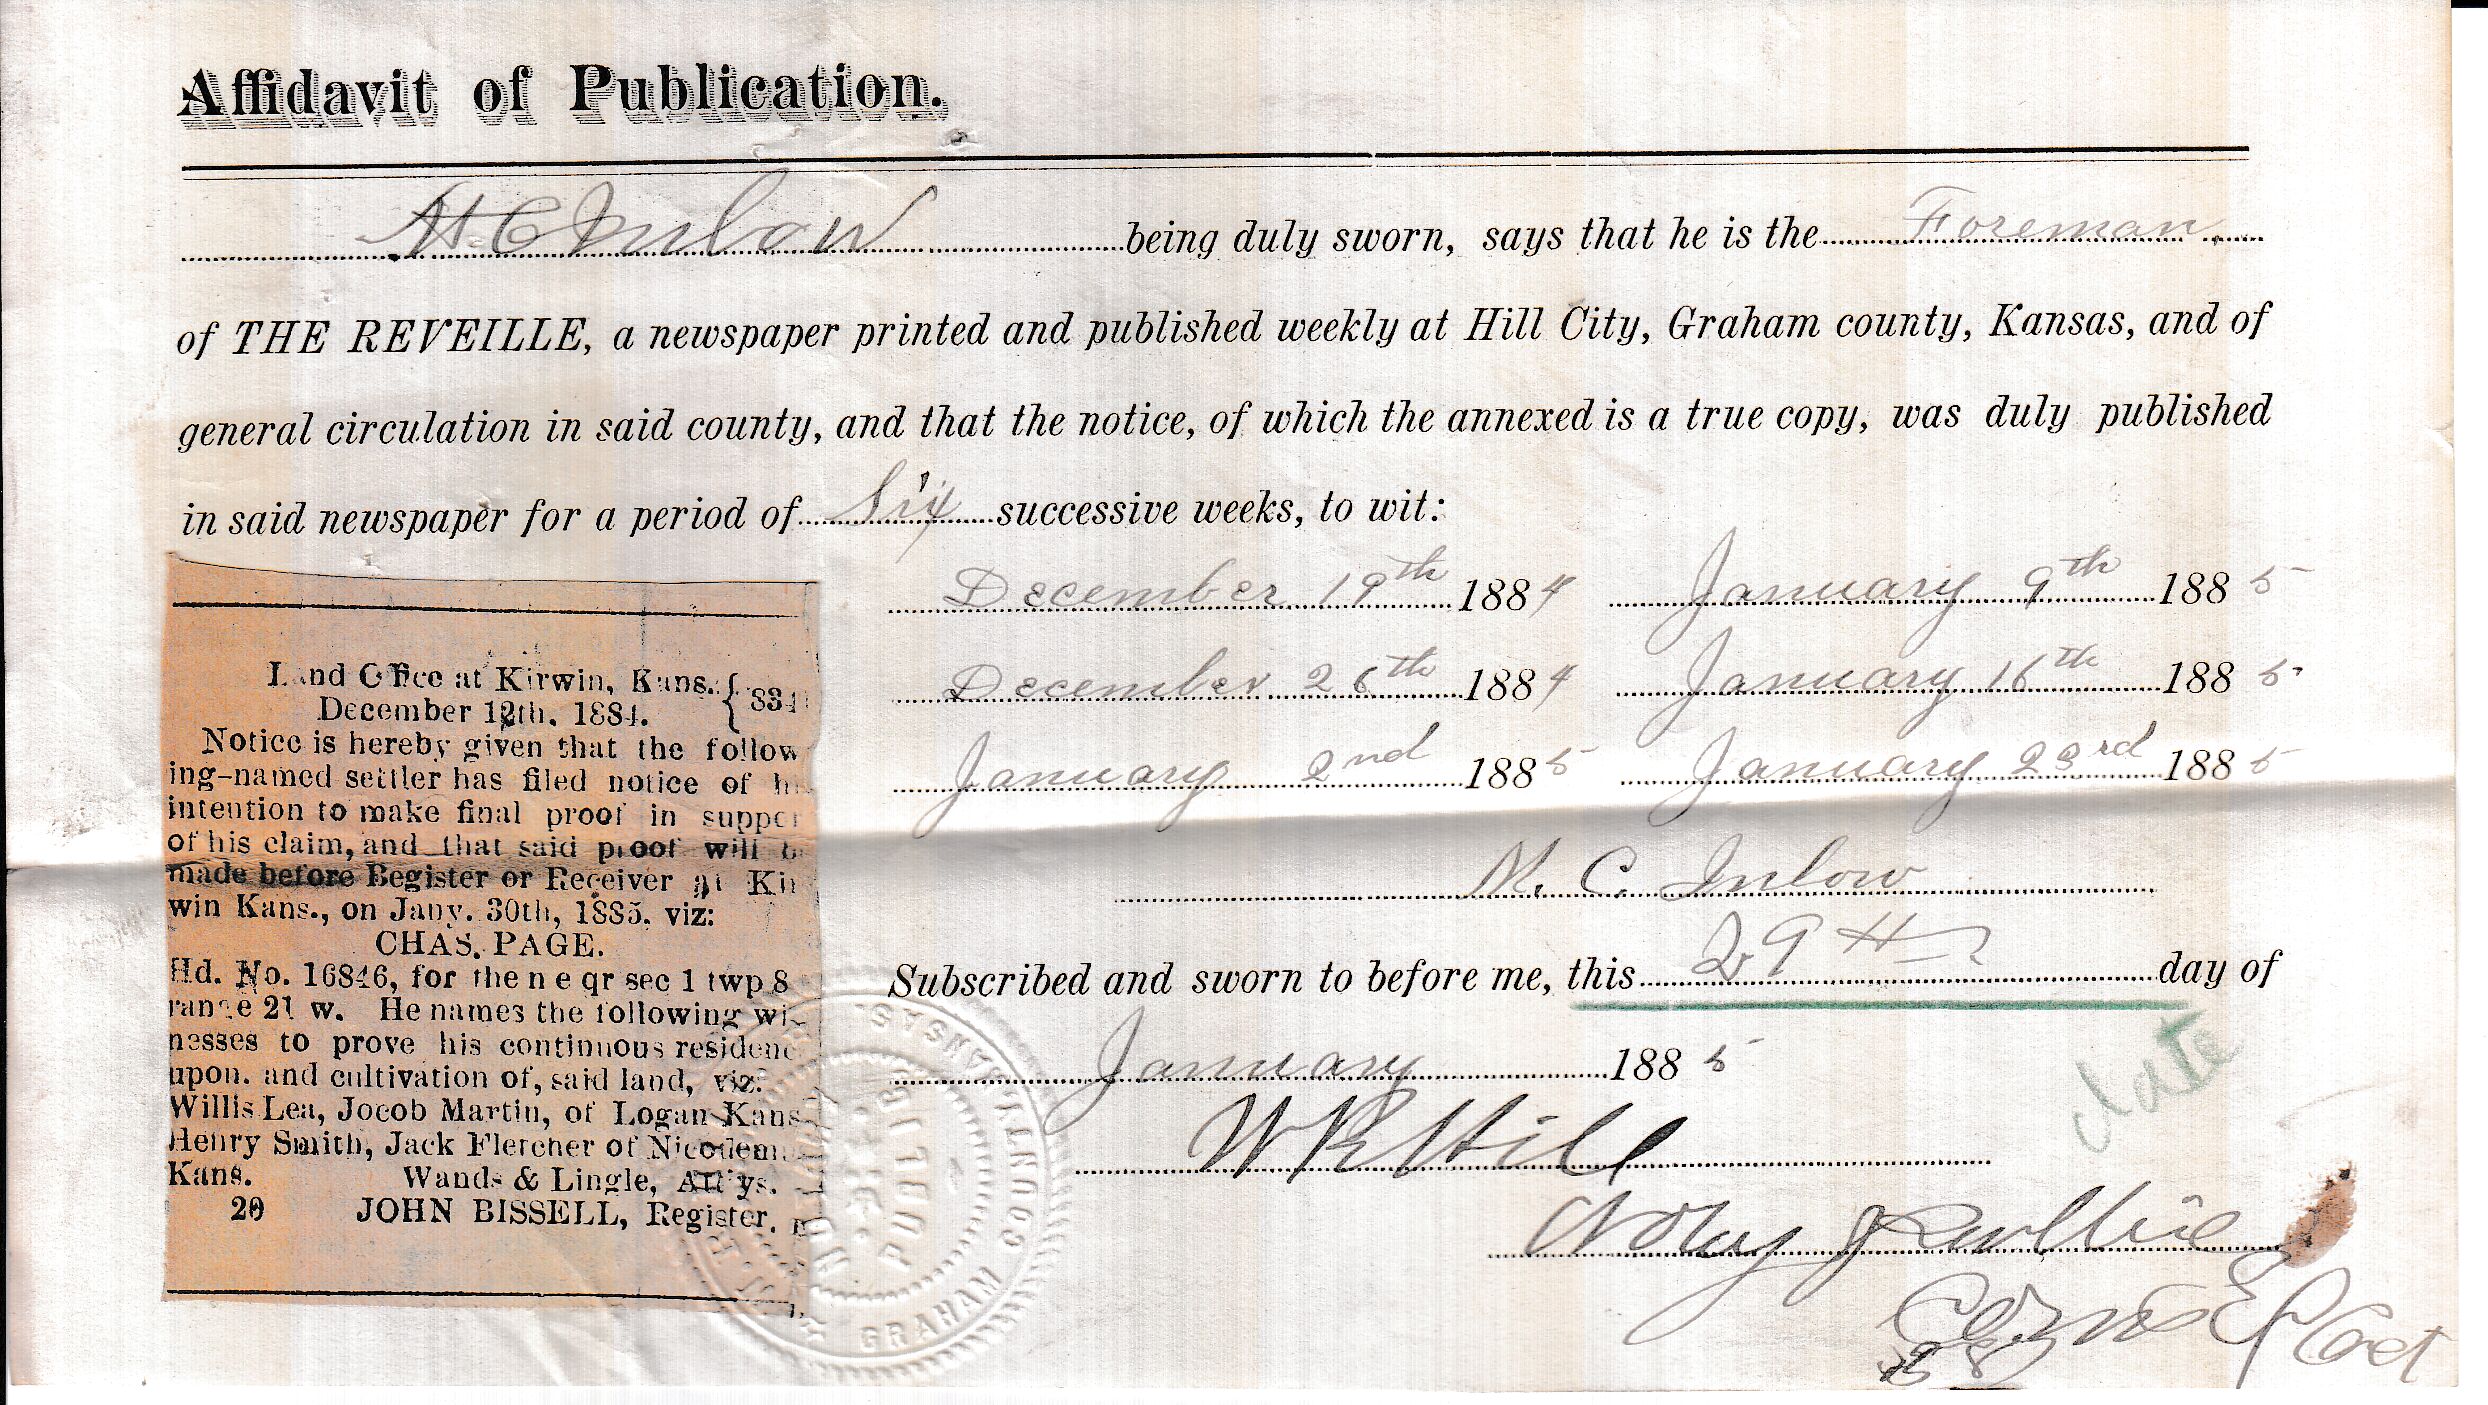 Affidavit of Publication.
M. C. Inlow being duly sworn, says that he is the Foreman
of THE REVEILLE, a newspaper printed and published weekly at Hill City, Graham county, Kansas, and of
general circulation in said county, and that the notice, of which the annexed is a true copy, was duly published
in said newspaper for a period of Six successive weeks, to wit:
December 19th 1884 January 9th 1885
December 26th 1884 January 16th 1885
January 2nd 1885 January 23rd 1885
M. C. Inlow
Subscribed and sworn to before me, this 29th day of
January 1885
date
W R Hill
Notary Public
Com Ex Oct
Land Office at Kirwin, Kans. { 834
December 12th. 1884.
Notice is hereby given that the follow
ing-named settler has filed notice of hi
intention to make final proof in suppor
of his claim, and that said proof will b
made before Register or Receiver at Kir
win Kans., on Jany. 30th, 1885. viz:
CHAS. PAGE.
Hd. No. 16846, for the n e qr sec 1 twp 8
range 21 w. He names the following wi
nesses to prove his continuous residenc
upon. and cultivation of, said land, viz:
Willis Lea, Jocob Martin, of Logan Kans
Henry Smith, Jack Fletcher of Nicodem
Kans. Wands & Lingle, Att'ys.
20 JOHN BISSELL, Register.
PUBLIC
GRAHAM COUNTY, KANSAS